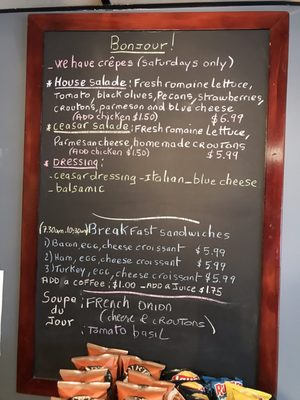 Bonjour!
- we have crêpes (Saturdays only)
* House salade: Fresh romaine lettuce,
Tomato, black olives, Pecans, strawberries,
croutons, parmeson and blue cheese
(Add chicken $1.50) $6.99
* Ceasar salade: Fresh Romaine lettuce,
Parmesan cheese, homemade croutons
(Add chicken $1.50) $5.99
* Dressing:
- ceasar dressing - Italian - blue cheese
- balsamic
(7.30am-10.30am) Breakfast sandwiches
1) Bacon, egg, cheese croissant $5.99
2) Ham, egg, cheese croissant $5.99
3) Turkey, egg, cheese croissant $5.99
Add a coffee: $1.00 - Add a Juice $1.75
Soupe : French onion
du (cheese & croutons)
Jour : Tomato basil